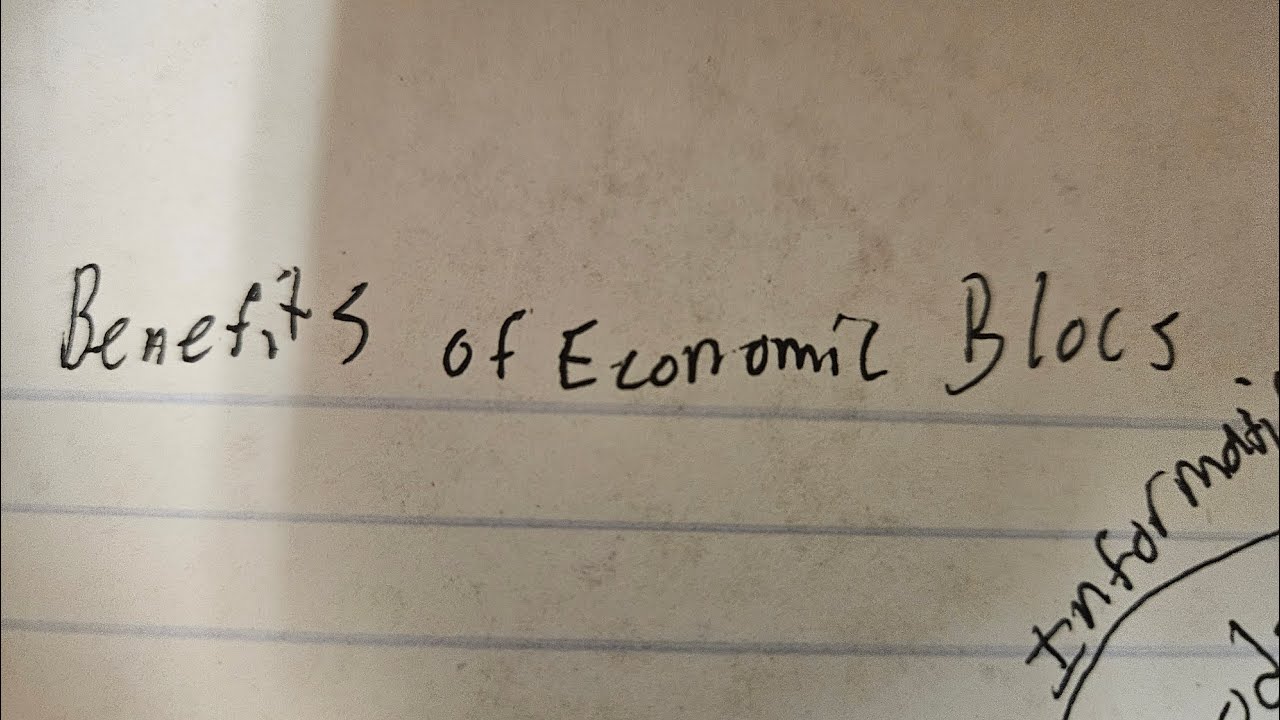 Benefits of Economic Blocs
Informati